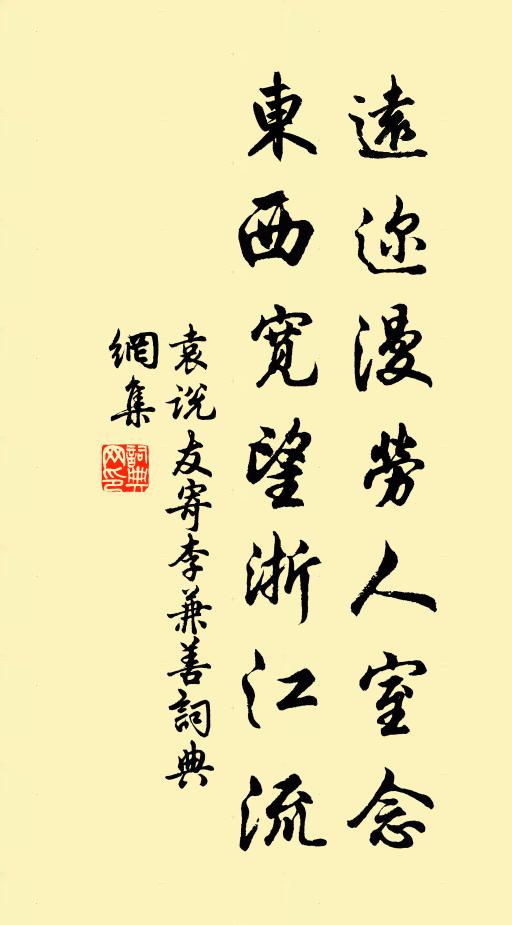 遠迩漫勞人室念
東西寬望浙江流
袁说友寄李兼善詞典
網集
詞典
网印